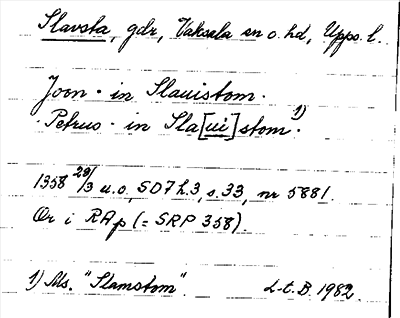 Slavsta, gdr, Vaksala sn o. hd, Upps. l.
Joon · in Slauistom ·
· Petrus · in Sla[ui]stom · 1)
1358 29/3 u.o., SD 7 h.3, s. 33, nr 5881.
Or i RAp (= SRP 358).
1) Ms. "Slamstom". L-t. B. 1982.